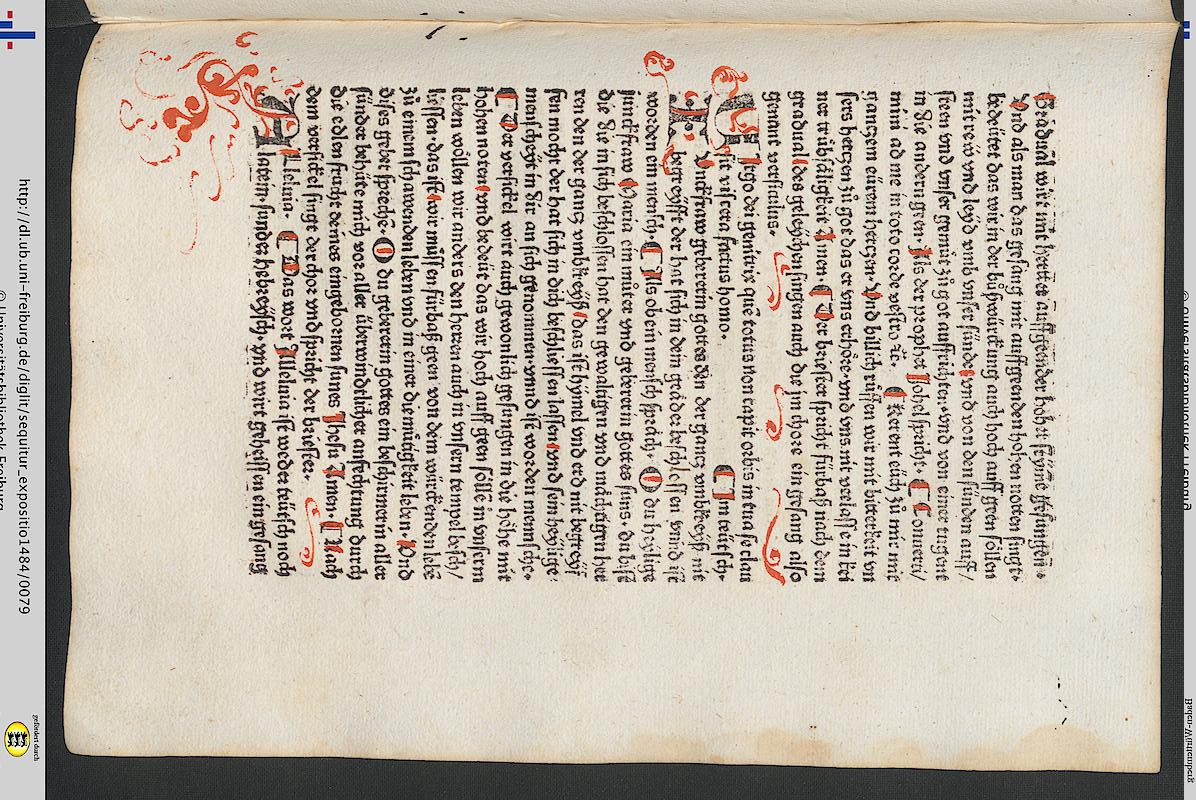 Gradual wirt mit herter auffgender hoher stymme gesungen.
Vnd als man das gesang mit auffgeenden hohen noten singt.
bedeütet das wir in der bůßwürckung auch hoch auff geen söllen
mit reü vnd leyd vmb vnser sünde vnd von den sünden auff/
steen vnd vnser gemüt zů got auffrichten. vnd von einer tugent
in die andern geen. Als der prophet Johel spricht. Conuerti/
mini ad me in toto corde vestro ꝛc. Kerent eüch zů mir mit
ganczem eürem herczen. Vnd billich růffen wir mit bitterkeit vn
sers herczen zů got das er vns erhöre. vnd vns nit verlasse in kei
ner trübsäligkeit Amen. Der briester spricht fürbaß nach dem
gradual des geleychen singen auch die jm chore ein gesang also
genant versiculus.
Uirgo dei genitrix quē totus non capit orbis in tua se clau
sit viscera factus homo. Im teütsch.
Junckfraw gebererin gottes den der gancz vmbkreyß nit
begreyfft der hat sich in dem geäder beschlossen vnnd ist
worden ein mensch. Als ob ein mensch spräch. O du heylige
junckfraw Maria ein můter vnd gebererin gottes suns. du bist
die die in sich beschlossen hat den gewaltigen vnd mächtigen her
ren den der gancz vmbkreyß das ist hymel vnd erd nit begreyf
fen mocht der hat sich in dich beschliessen lassen vnd sein heylige
menscheyt in dir an sich genommen. vnnd ist worden mensche.
Der versickel wirt auch gewonlich gesungen in die höhe mit
hohen noten vnd bedeüt das wir hoch auff geen sölle in vnserm
leben wöllen wir anders den herren auch in vnsern tempel besch/
liessen. das ist wir müssen fürbaß geen von dem würckenden lebē
zů einem schawenden leben vnd in einer diemütigkeit leben. Vnd
dises gebet spreche. O du gebererin gottes ein beschirmerin aller
sünder behüte mich vor aller überwindtlicher anfechtung durch
die edlen frucht deines eingebornen sunes Jhesu Amen. Nach
dem versickel singt der chor vnd spricht der briester.
Alleluia. Das wort Alleluia ist weder teütsch noch
latein. sunder hebreysch. vnd wirt geheissen ein gesang
http://dl.ub.uni-freiburg.de/diglit/sequitur_expositio1484/0079
© Universitätsbibliothek Freiburg
gefördert durch
Baden-Württemberg